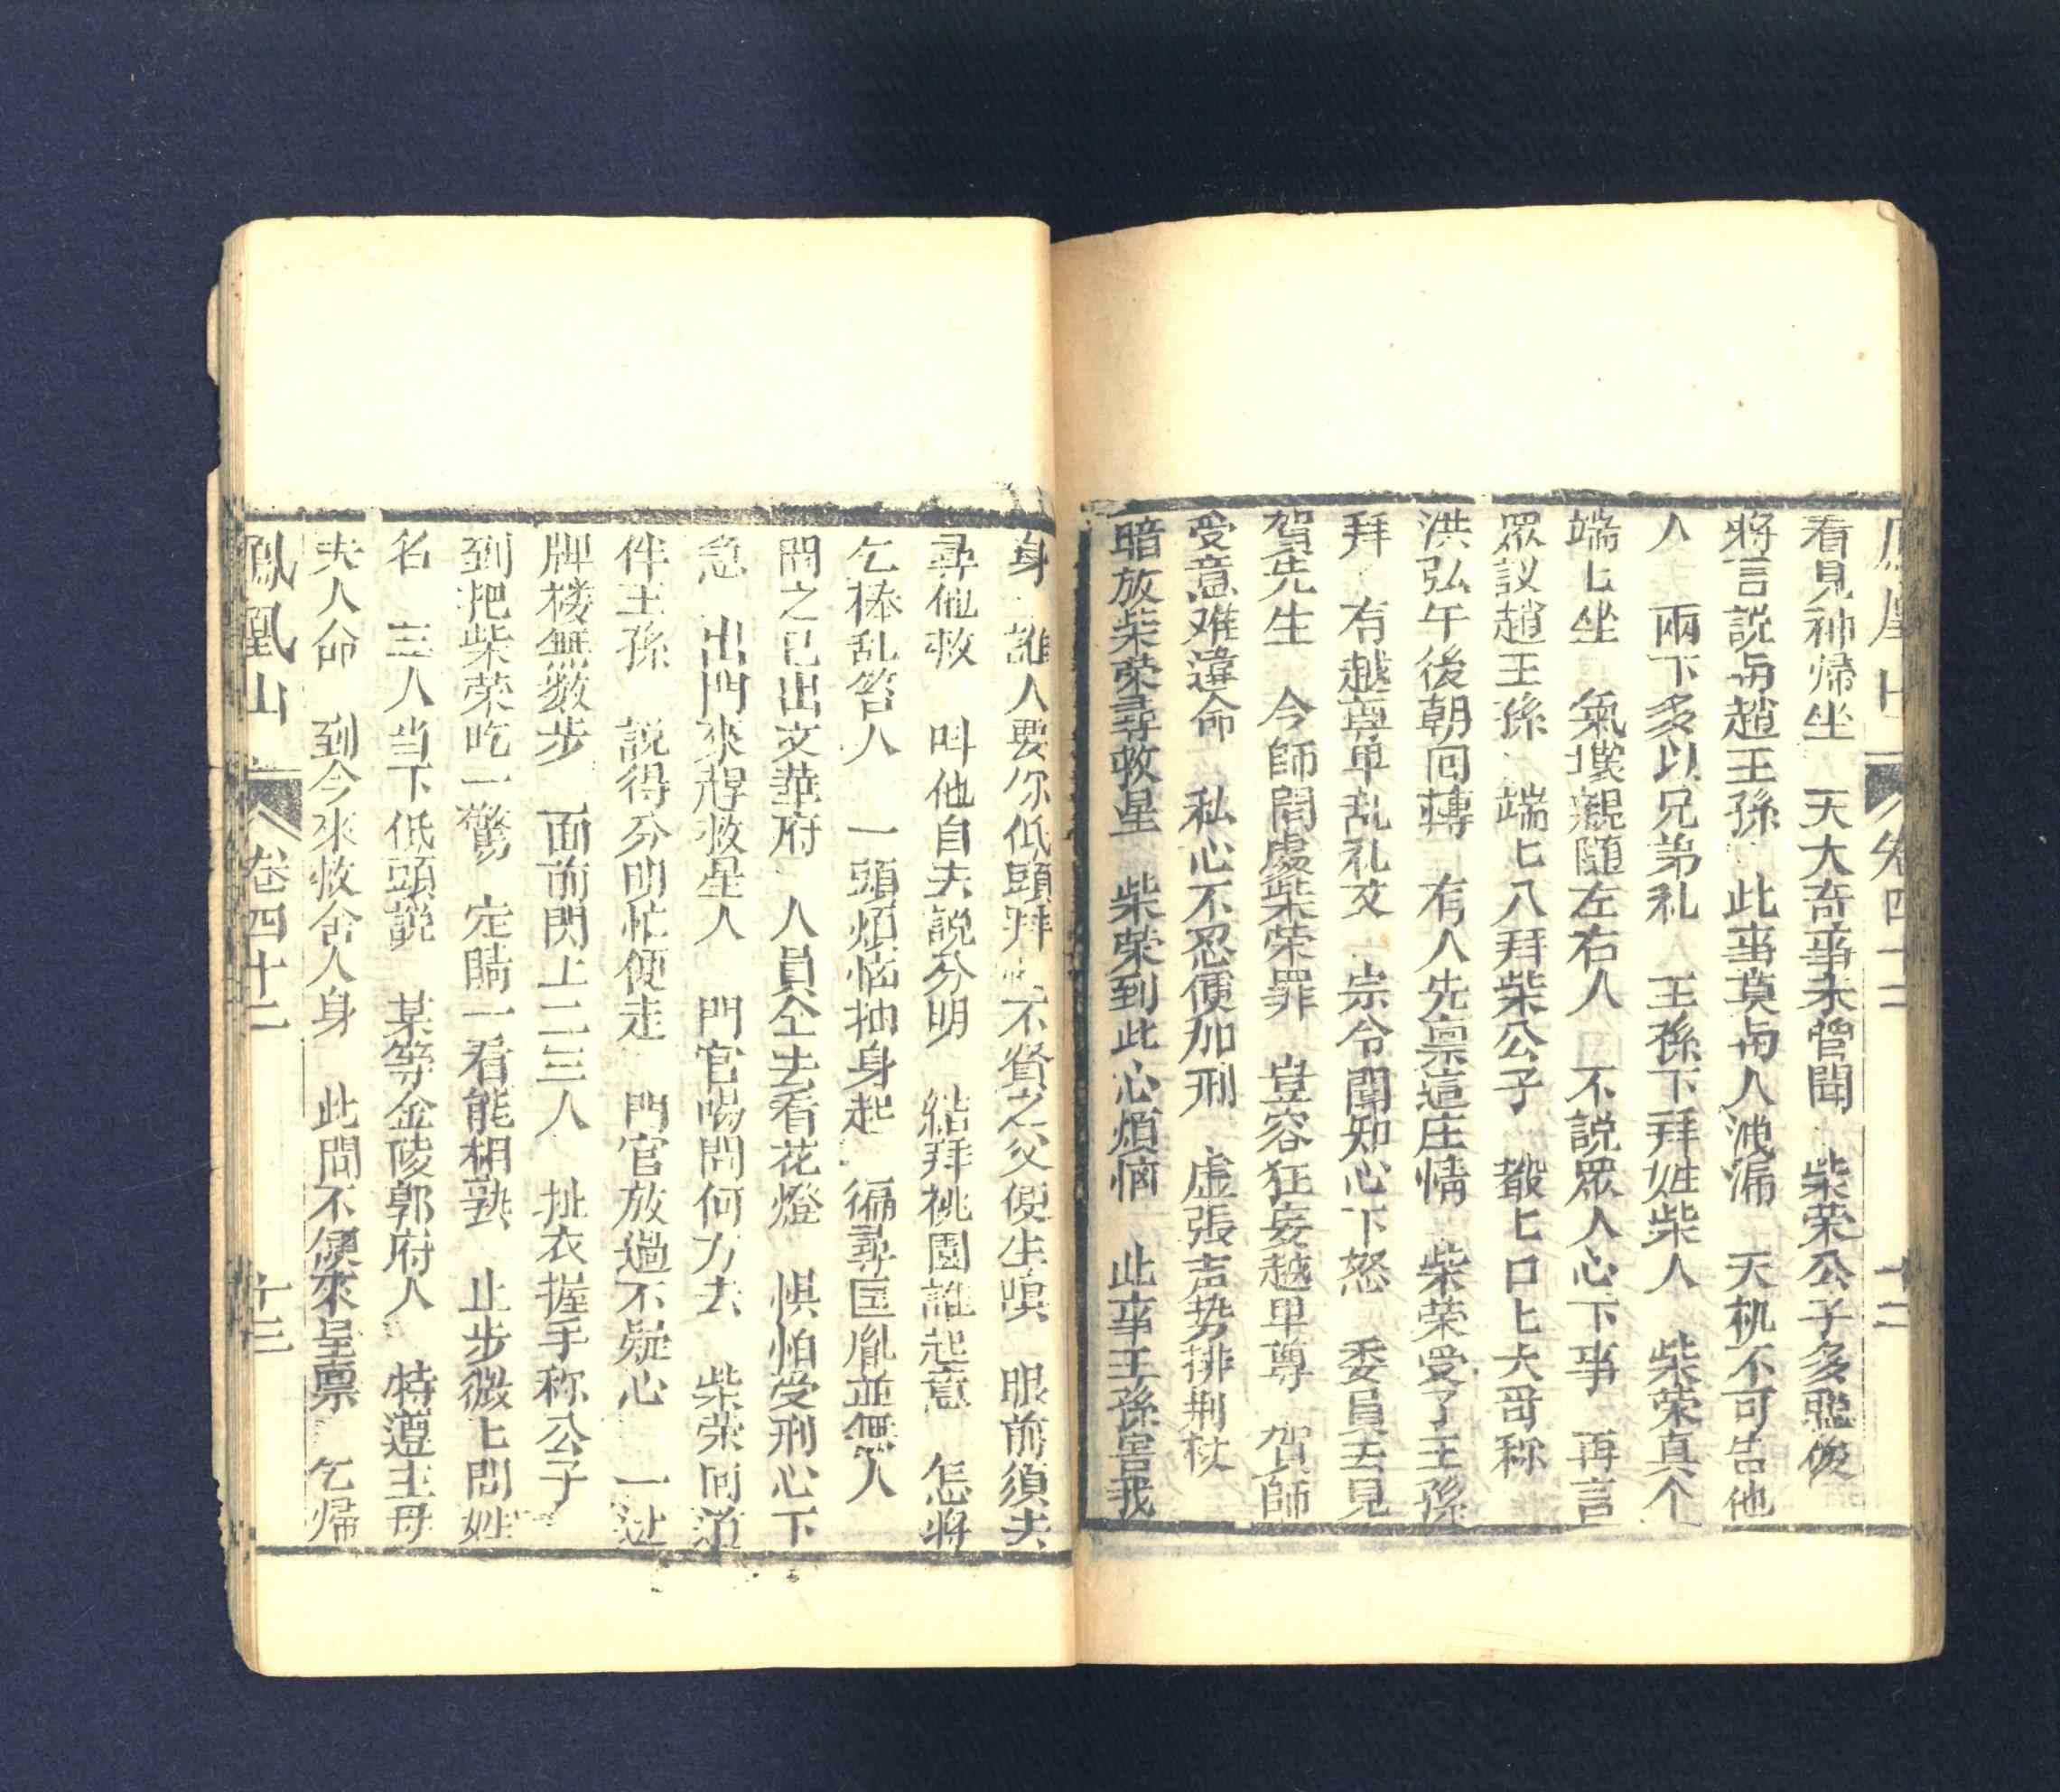 鳳凰山 卷四十二 十二
看見神帰坐 天大奇事未曾聞 柴荣公子多聰俊
將言説与趙王孫 此事莫与人洩漏 天机不可告他
人 兩下多以兄弟礼 王孫下拜姓柴人 柴荣真个
端〻坐 氣壞親随左右人 不説眾人心下事 再言
眾议趙王孫 端〻八拜柴公子 聲〻口〻大哥称
洪弘午後朝回轉 有人先禀這庄情 柴荣受了王孫
拜 有越尊卑乱礼文 宗令聞知心下怒 委員去見
賀先生 今師問處柴荣罪 豈容狂妄越卑尊 賀師
受意难違命 私心不忍便加刑 虚張声势排荆杖
暗放柴荣尋救星 柴荣到此心煩惱 此事王孫害我
身 誰人要你低頭拜 不賢之父便生嗔 眼前須夫
尋他救 叫他自夫説分明 結拜桃園誰起意 怎將
乞棒乱笞人 一頭煩惱抽身起 徧尋匡胤並無人
問之已出文華府 人員仝去看花燈 惧怕受刑心下
急 出門來趕救星人 門官喝問何方去 柴荣回道
伴王孫 説得分明忙便走 門官放過不疑心 一过
牌楼無数步 面前閃上二三人 扯衣握手称公子
到把柴荣吃一驚 定睛一看能相熟 止步微〻問姓
名 三人当下低頭説 某等金陵郭府人 特遵主母
夫人命 到今來救舍人身 此間不便來呈禀 乞帰
鳳凰山 卷四十二 十三